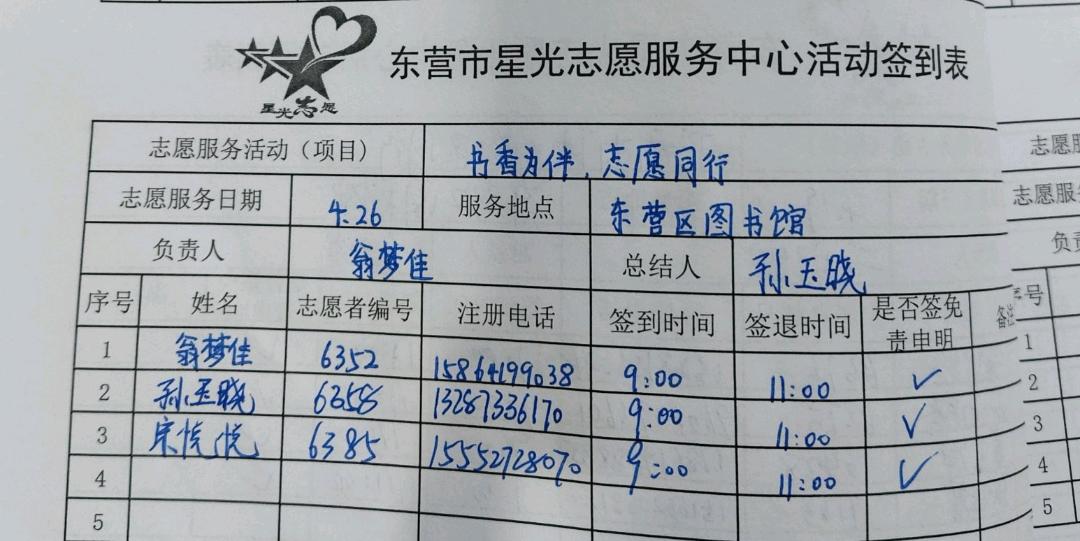 星光志愿
东营市星光志愿服务中心活动签到表
志愿服务活动（项目） 书香为伴，志愿同行
志愿服务日期 4.26 服务地点 东营区图书馆
负责人 翁梦佳 总结人 孙玉晓
序号 姓名 志愿者编号 注册电话 签到时间 签退时间 是否签免责申明 备注
1 翁梦佳 6352 15864199038 9:00 11:00 ✓
2 孙玉晓 6358 13287336170 9:00 11:00 ✓
3 宋悦悦 6385 15552728070 9:00 11:00 ✓
4
5
志愿服
志愿服
负责
序号
1
2
3
4
5